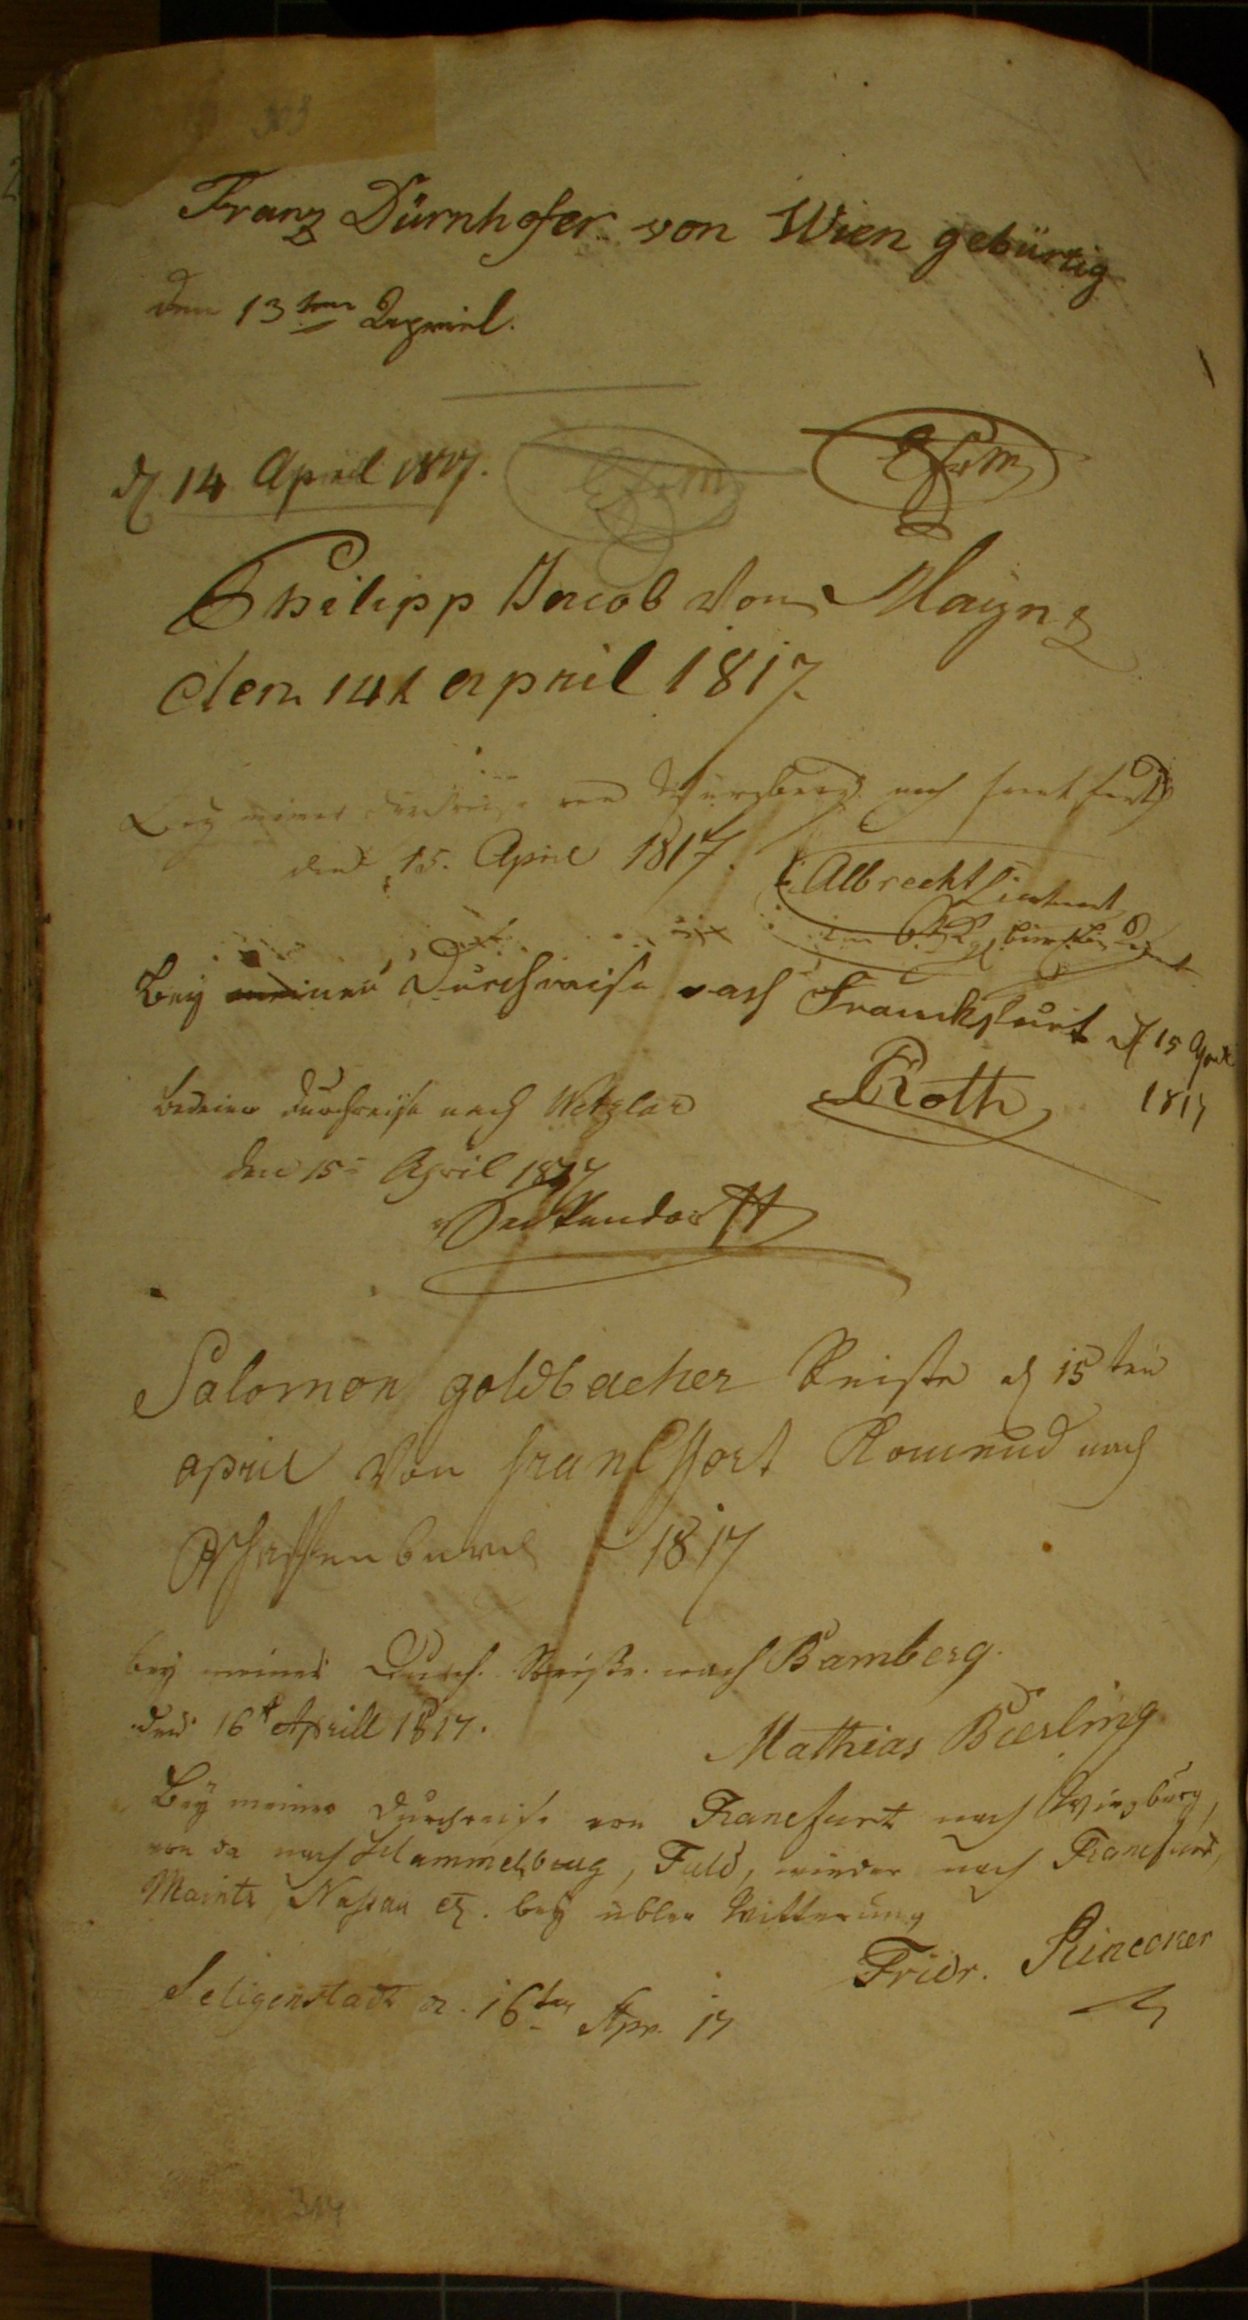 Franz Dürnhofer von Wien gebürtig
den 13ten Apriel.
d. 14 April 1817.
Philipp Jacob von Maynz
dem 14t april 1817
Bey meiner Durchreise von Würzberg nach
den 15. April 1817.
Albrecht
Bey meiner Durchreise nach Franckfurt d 15 April
1817
Roth
bei einer Durchreise nach Wetzlar
den 15= April 1817
Seckendorff
Salomon goldbacher Reiste d 15ten
april von frankfort Komend nach
1817
bey meiner Durch Reise nach Bamberg.
den 16t Aprill 1817.
Mathias Bierling
Bey meiner Durchreise von Francfurt nach Wirzburg,
von da nach Hammelburg, Fuld, wieder nach Francfurt,
Maintz, Nassau etz. bey übler Witterung
Fridr. Rinecker
Seligenstadt d. 16ten Apr. 17